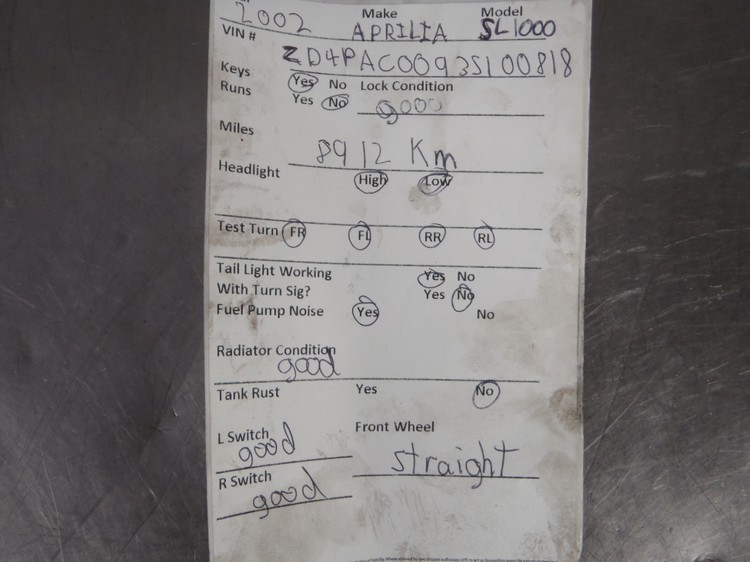 Make Model
2002 APRILIA SL1000
VIN # ZD4PAC0093S100818
Keys Yes No Lock Condition
Runs Yes No good
Miles 8912 Km
Headlight High Low
Test Turn FR FL RR RL
Tail Light Working Yes No
With Turn Sig? Yes No
Fuel Pump Noise Yes No
Radiator Condition
good
Tank Rust Yes No
L Switch Front Wheel
good straight
R Switch
good